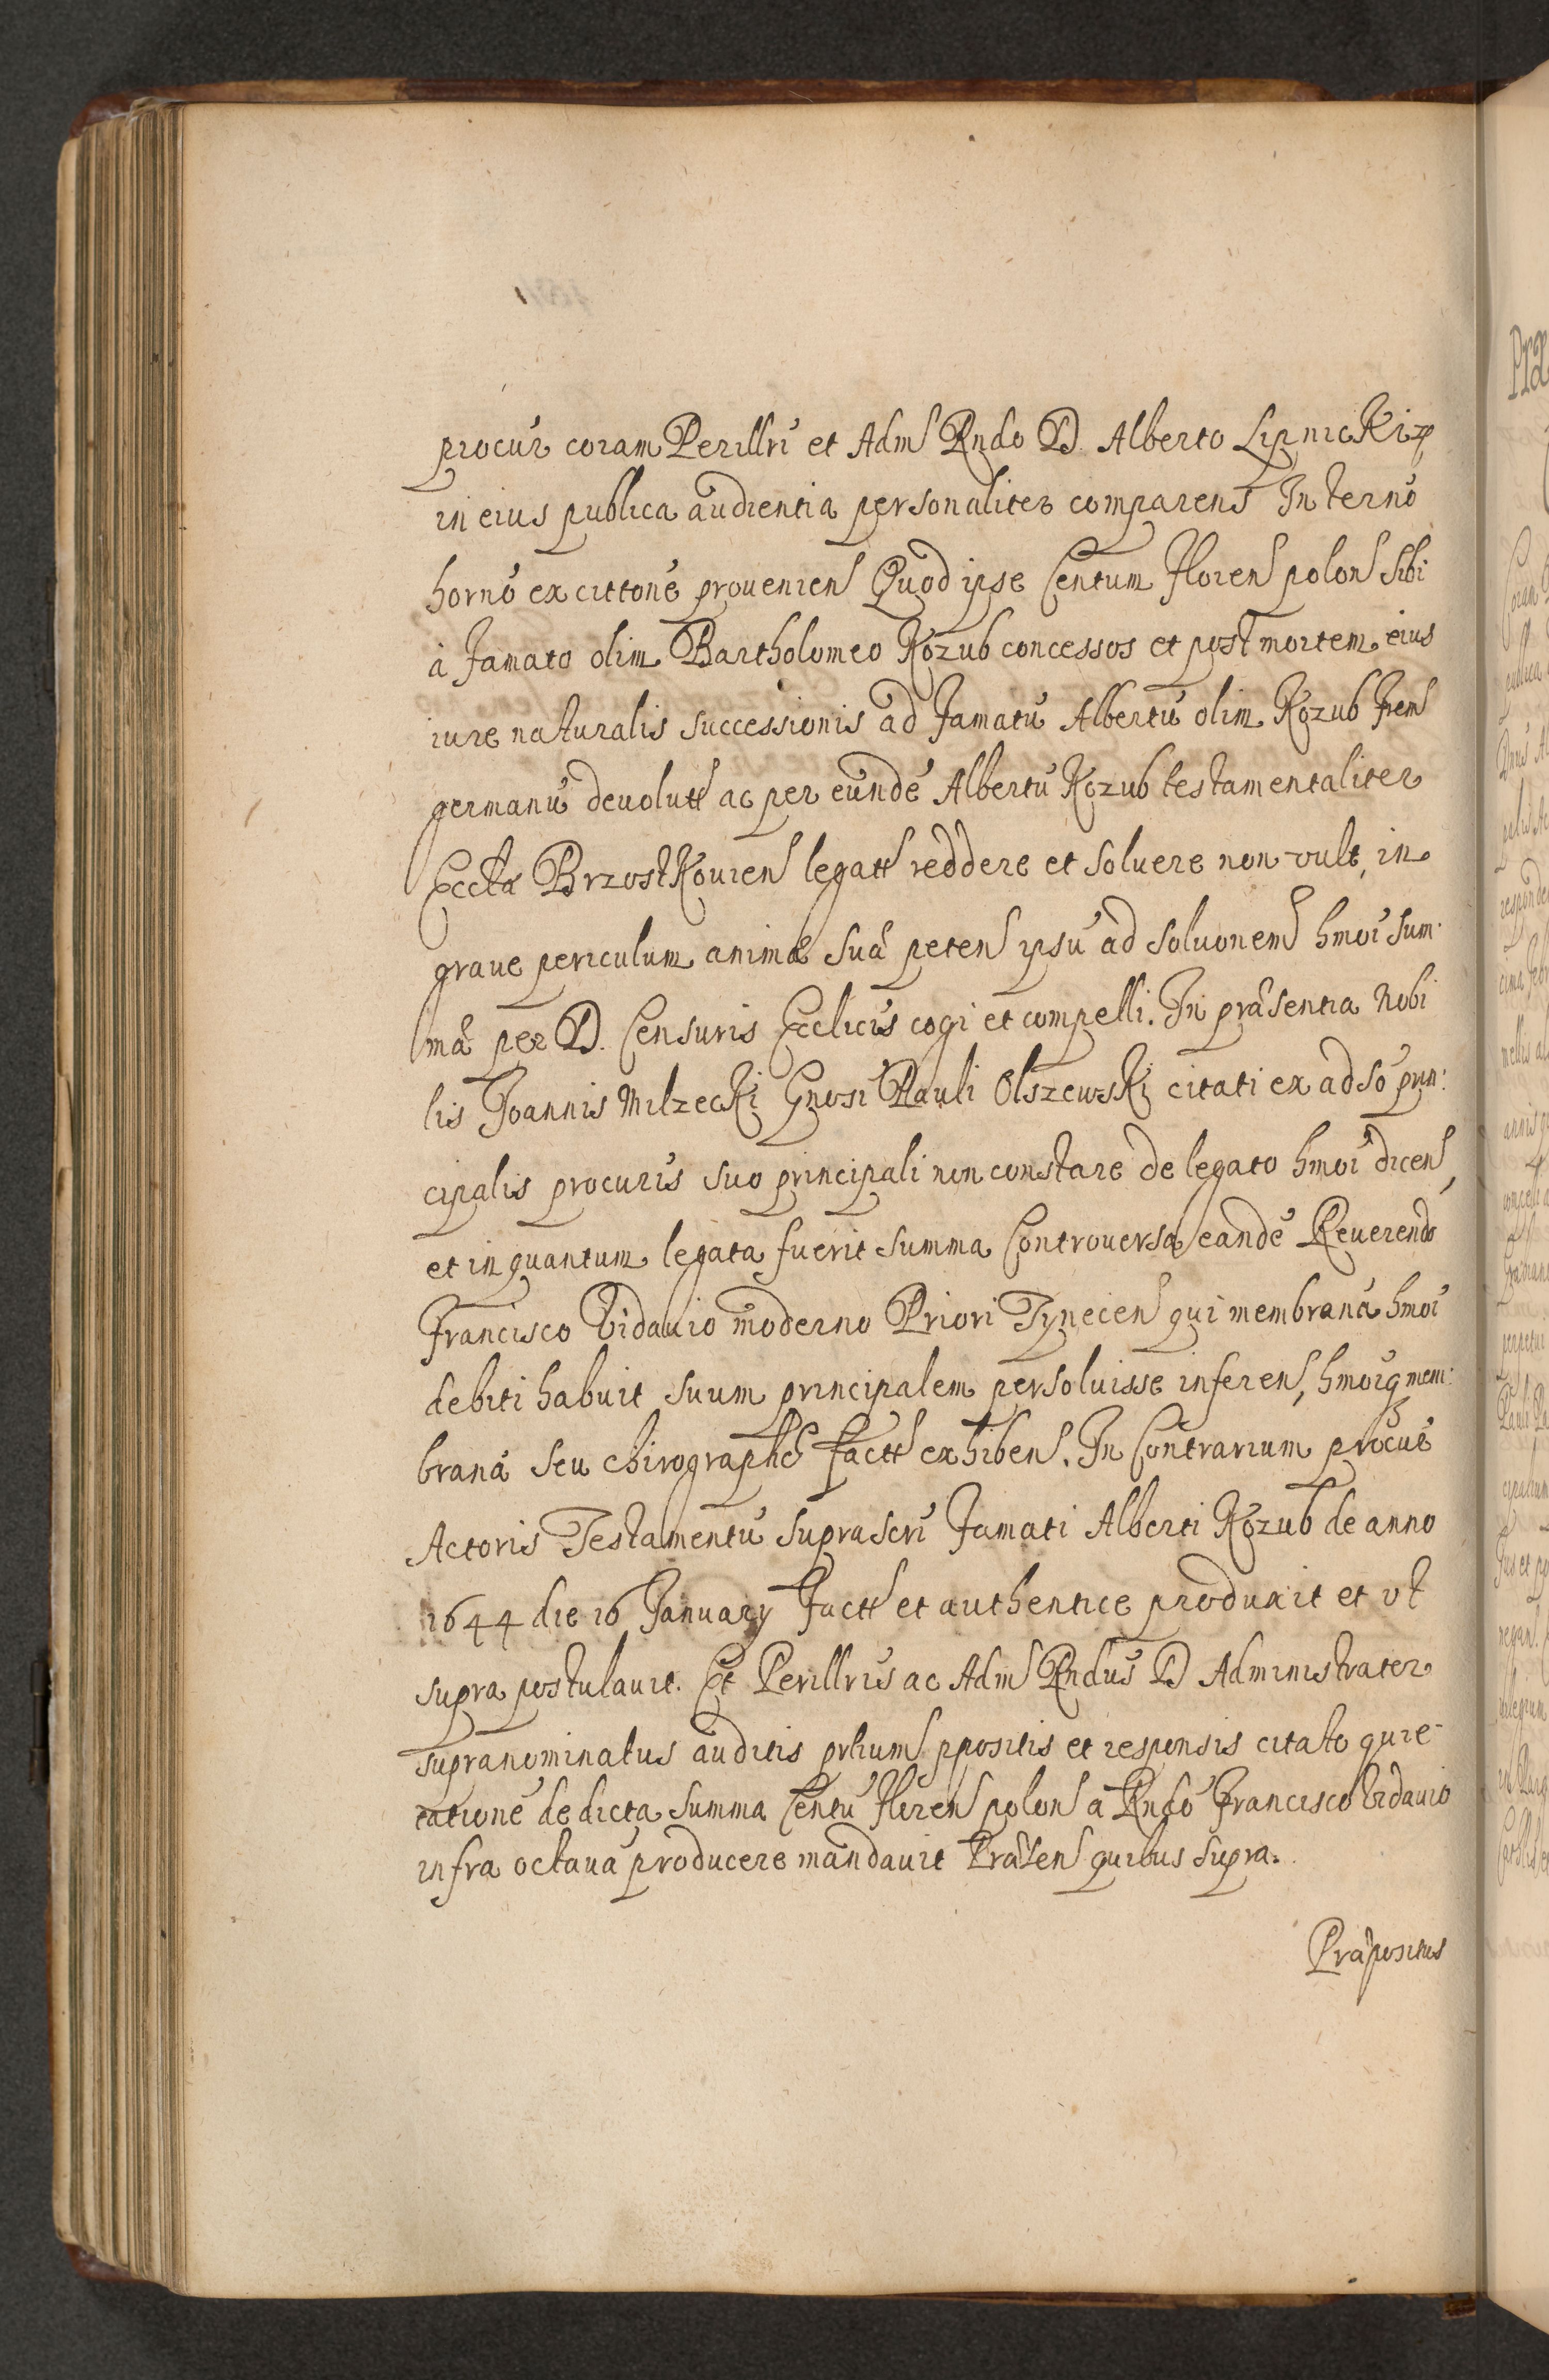 procur̃ coram Perillri et Adm Rndo D. Alberto Lipnicki
in eius publica audientia personaliter comparens In terno
horno ex cittone prouenien Quod ipse Centum floren polon sibi
à famato olim Bartholomeo Kozub concessos et post mortem eius
iure naturalis successionis ad famatũ Albertũ olim Kozub frem
germanũ deuolutt ac per eundẽ Albertũ Kozub testamentaliter
Eccłæ Brzostkouien legatt reddere et soluere non vult, in
graue periculum animæ suæ peten ipsũ ad soluonem hmoi sum:
mæ per D. Censuris Ecclicis cogi et compelli. In præsentia Nobi
lis Joannis Milzecki Gnosi Pauli Olszewski citati ex adso prin:
cipalis procuris suo principali non constare de legato hmoi dicen,
et in quantum legata fuerit summa Controuersa eandẽ Reuerendo
Francisco Vidauio moderno Priori Tynecien qui membranã hmoi
debiti habuit suum principalem persoluisse inferen, hmoiq mem:
branã seu chirographũ factt exhiben. In Contrarium procur̃
Actoris Testamentũ suprascri famati Alberti Kozub de anno
1644 die 16 January factt et authentice produxit et vt
supra postulauit. Et Perillris ac Adm Rndus D Administrator
supranominatus auditis prtium ppositis et responsis citato quie-
tationẽ de dicta summa Centũ floren polon a Rndo Francisco Vidauio
infra octauã producere mandauit Præsen quibus supra.
Præpositus